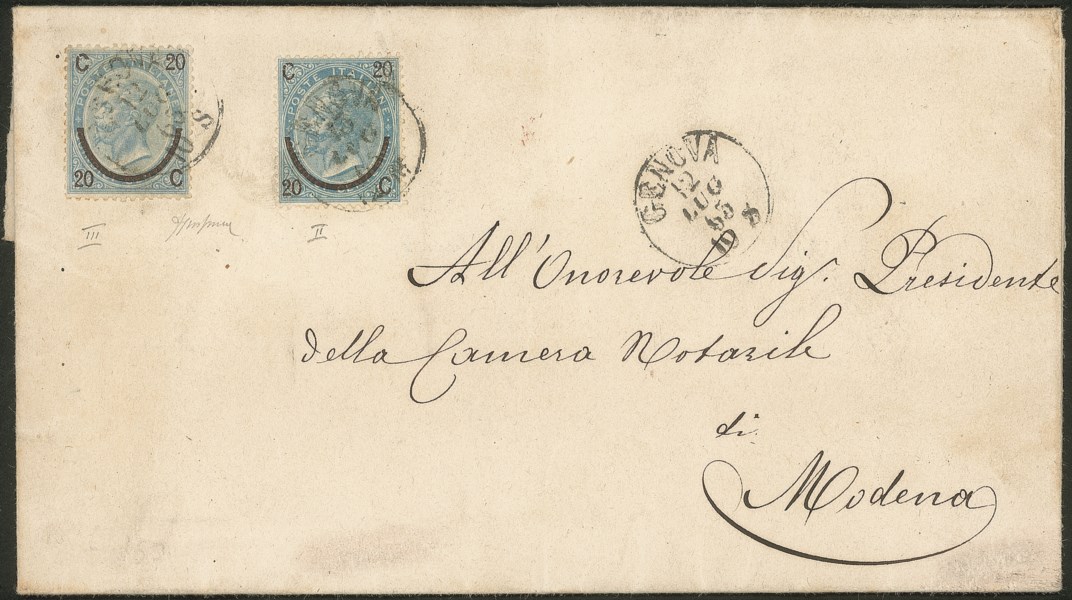 C 20
POSTE ITALIANE
20 C
C 20
POSTE ITALIANE
20 C
GENOVA
12
LUG
65
10 S
III
II
All'Onorevole Sigr. Presidente
della Camera Notarile
di
Modena